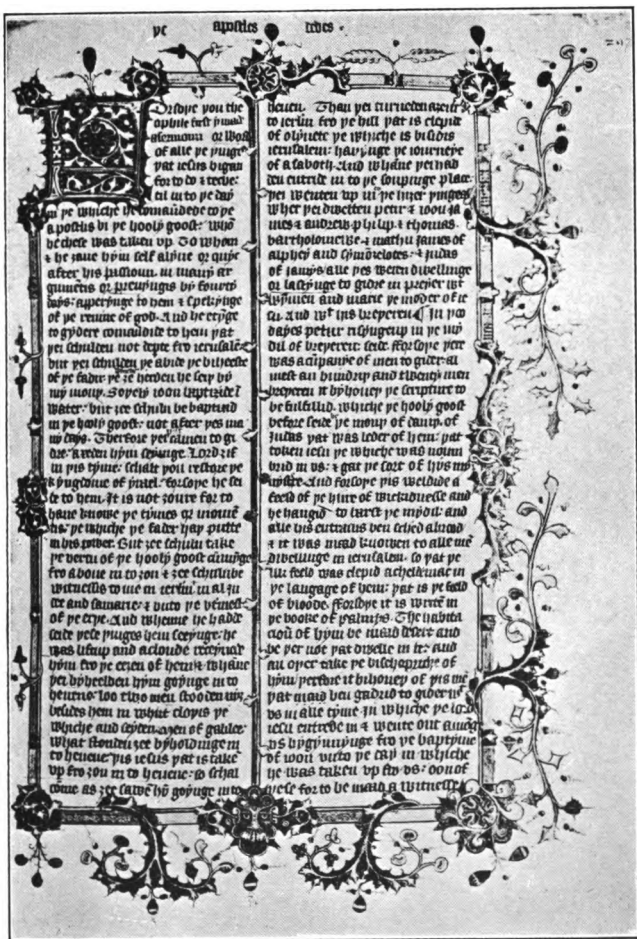 þe apostles dedes
Forsoþe you the
ophile first y maad
a sermoun or word
of alle þe þinges
þat iesus bigan
for to do & teche
til in to þe day
in þe whiche he comaundede to þe
apostlis bi þe hooly goost: who
he chese was taken vp. To whom
& he ȝaue hym self alyue or quyc
after his passioun in many ar
gumens or preuyngis by fourty
days: apperynge to hem & spekynge
of þe reume of god. And he etynge
to gydere comaundide to hem þat
þei schulden not depte fro ierusalem
but þei schulden þe abide þe biheeste
of þe fadir þe ȝe herden he seiþ by
my mouþ. Soþely ioon baptizide i
water: but ȝee schuln be baptizid
in þe hooly goost: not after þes ma
ny days. Therfore þei camen to gi
dre: axeden hym seyinge. Lord ȝif
in þis tyme: schalt þou restore þe
kyngdome of israel. forsoþe he sei
de to hem. It is not ȝoure for to
haue knowe þe tymes or mouen
tis þe whiche þe fader haþ putte
in his power. But ȝee schuln take
þe vertu of þe hooly goost comynge
fro aboue in to ȝou & ȝee schuln be
witnessis to me in ierlm in al ju
dee and samarie: & vnto þe vtmest
of þe erþe. And whenne he hadde
seide þese þinges hem seeynge: he
was liftup and a cloude receyuede
hym fro þe eeȝen of hem & whane
þei byheelden hym goynge in to
heuene: loo two men stooden nyȝ
besides hem in whiit cloþis þe
whiche and seyden. Men of galilee:
what stonden ȝee byholdinge in
to heuene: þis iesus þat is take
vp fro ȝou in to heuene: so schal
come as ȝee sawe hym goynge in to
heuen. Than þei turneden aȝein
to ierlm fro þe hill þat is clepid
of olyuete þe whiche is bisidis
ierusalem: hauynge þe iourneye
of a saboth. And whane þei had
den entride in to þe soupinge place:
þei wenten vp in þe hiȝer þinges
wher þei dwelten petir & ioon ja
mes & andrew philip & thomas.
bartholomewe & mathu james of
alphey and symozelotes: & judas
of jamys alle þes weren dwellinge
or lastynge to gidre in preyer wt
wymmen and marie þe moder of ie
su. And wt his breþeren ¶ In þoo
dayes petur risynge up in þe my
dil of breþeren: seide. fforsoþe þere
was a cumpanye of men to gider: al
mest an hundrid and twenty men
breþeren it byhoueþ þe scripture to
be fulfillid. whiche þe hooly goost
before seide þe mouþ of dauid. of
Judas þat was leder of hem: þat
token iesu þe whiche was noum
brid in vs: & gat þe sort of his my
nystre. And forsoþe þis weldide a
feeld of þe hire of wickidnesse and
he hangid to barst þe mydil: and
alle his entrailis ben sched abrood
& it was maad knowen to alle men
dwellinge in ierusalem. so þat þe
ilk feeld was clepid acheldemac in
þe langage of hem: þat is þe feeld
of bloode. fforsoþe it is writen in
þe booke of psalmys. The habita
cioun of hym be maad desert and
be þer not þat dwelle in it: and
an oþer take þe bischopriche of
hym þerfore it bihoueþ of þis men
þat maad ben gadrid to gider wt
vs in alle tyme in whiche þe lord
iesu entrede in & wente out amonge
vs bygynnynge fro þe baptyme
of ioon vnto þe day in whiche
he was taken vp fro vs: oon of
þese for to be maad a witnesse